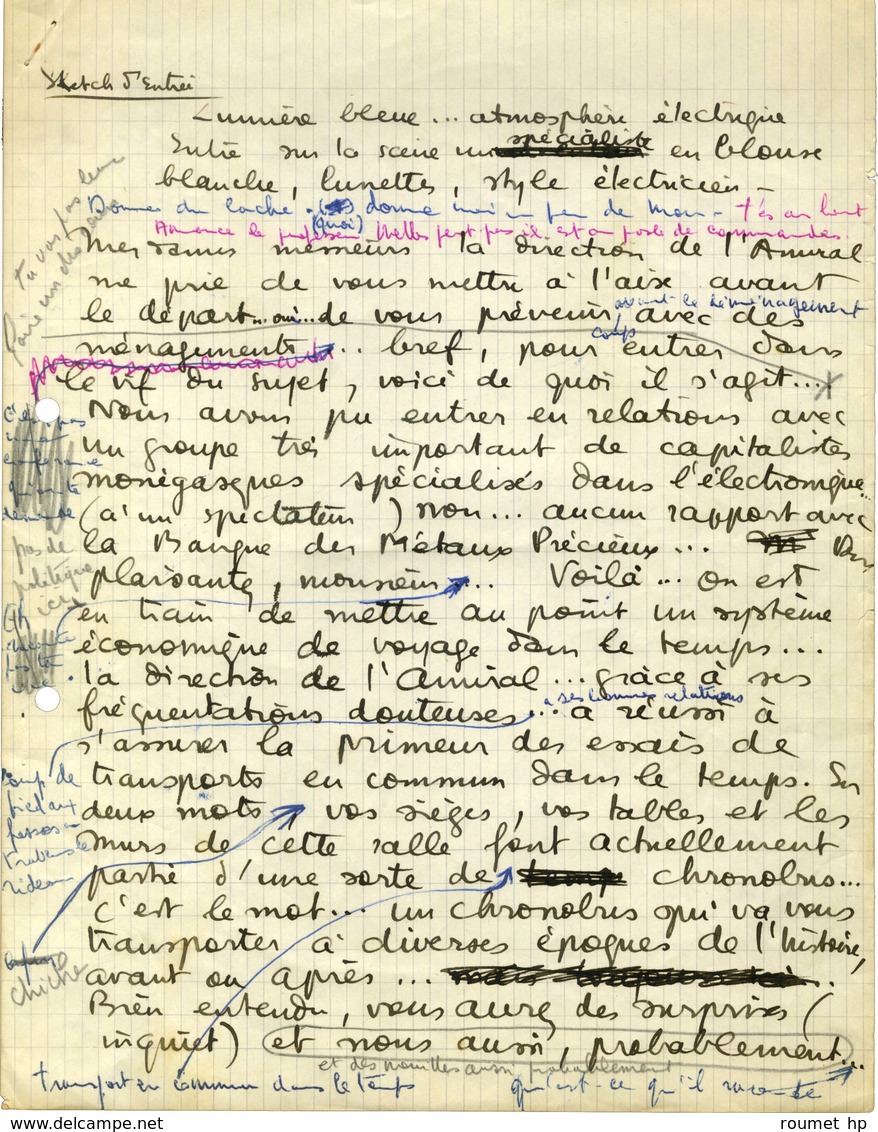 Sketch d'Entrée
Lumière bleue... atmosphère électrique
Entre sur la scène un spécialiste en blouse
blanche, lunettes, style électricien -
Donne du lâche donne moi un peu de mou - t'es en haut
Annonce le professeur il est au poste de commandes
Mesdames messieurs la direction de l'Amiral
me prie de vous mettre à l'aise avant
le départ... oui... de vous prévenir, avec des
avant le déménagement
ménagements... bref, pour entrer dans
coups
le vif du sujet, voici de quoi il s'agit...
Nous avons pu entrer en relations avec
un groupe très important de capitalistes
monégasques spécialisés dans l'électronique...
(à un spectateur) Non... aucun rapport avec
la Banque des Métaux Précieux...
plaisantez, monsieur... Voilà... on est
en train de mettre au point un système
économique de voyage dans le temps...
la direction de l'Amiral... grâce à ses
à ses bonnes relations
fréquentations douteuses... a réussi à
s'assurer la primeur des essais de
transports en commun dans le temps. En
deux mots vos sièges, vos tables et les
murs de cette salle font actuellement
partie d'une sorte de chronobus...
c'est le mot... un chronobus qui va vous
transporter à diverses époques de l'histoire,
avant ou après...
Bien entendu, vous aurez des surprises (
inquiet) et nous aussi, probablement...
et des nouilles aussi, probablement
transport en commun dans le temps
qu'est-ce qu'il raconte
Tu vas pas leur
faire un discours
C'est pas
une
conférence
qu'on te
demande
pas de
politique
ici
coup de
pied aux
fesses
à travers le
rideau
chiche
roumet hp